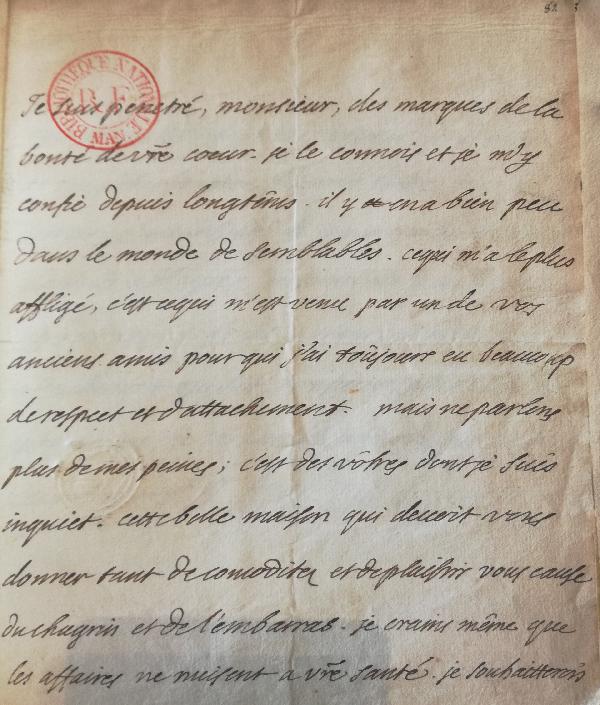 82
BIBLIOTHEQUE NATIONALE
R.F.
MAN.
Je suis penetré, monsieur, des marques de la
bonté de vr̃e coeur. je le connois et je m'y
confie depuis longtẽms. il y en a bien peu
dans le monde de semblables. cequi m'a le plus
affligé, c'est cequi m'est venu par un de vos
anciens amis pour qui j'ai toûjours eu beaucoup
de respect et d'attachement. mais ne parlons
plus de mes peines; c'est des vôtres dont je suis
inquiet. cette belle maison qui devoit vous
donner tant de comoditez et de plaisir vous cause
du chagrin et de l'embarras. je crains même que
les affaires ne nuisent a vr̃e santé. je souhaitterois